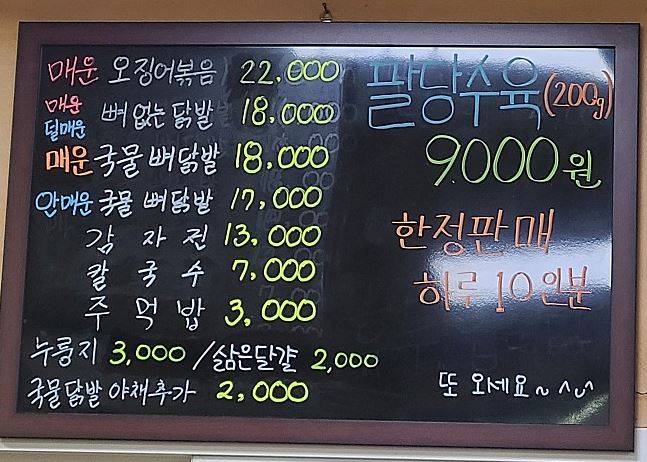 매운 오징어볶음 22,000
매운
덜매운 뼈없는 닭발 18,000
매운 국물 뼈닭발 18,000
안매운 국물 뼈닭발 17,000
감자전 13,000
칼국수 7,000
주먹밥 3,000
누룽지 3,000 / 삶은달걀 2,000
국물닭발 야채추가 2,000
팔당수육 (200g)
9,000원
한정판매
하루 10인분
또 오세요~ ^ᴗ^